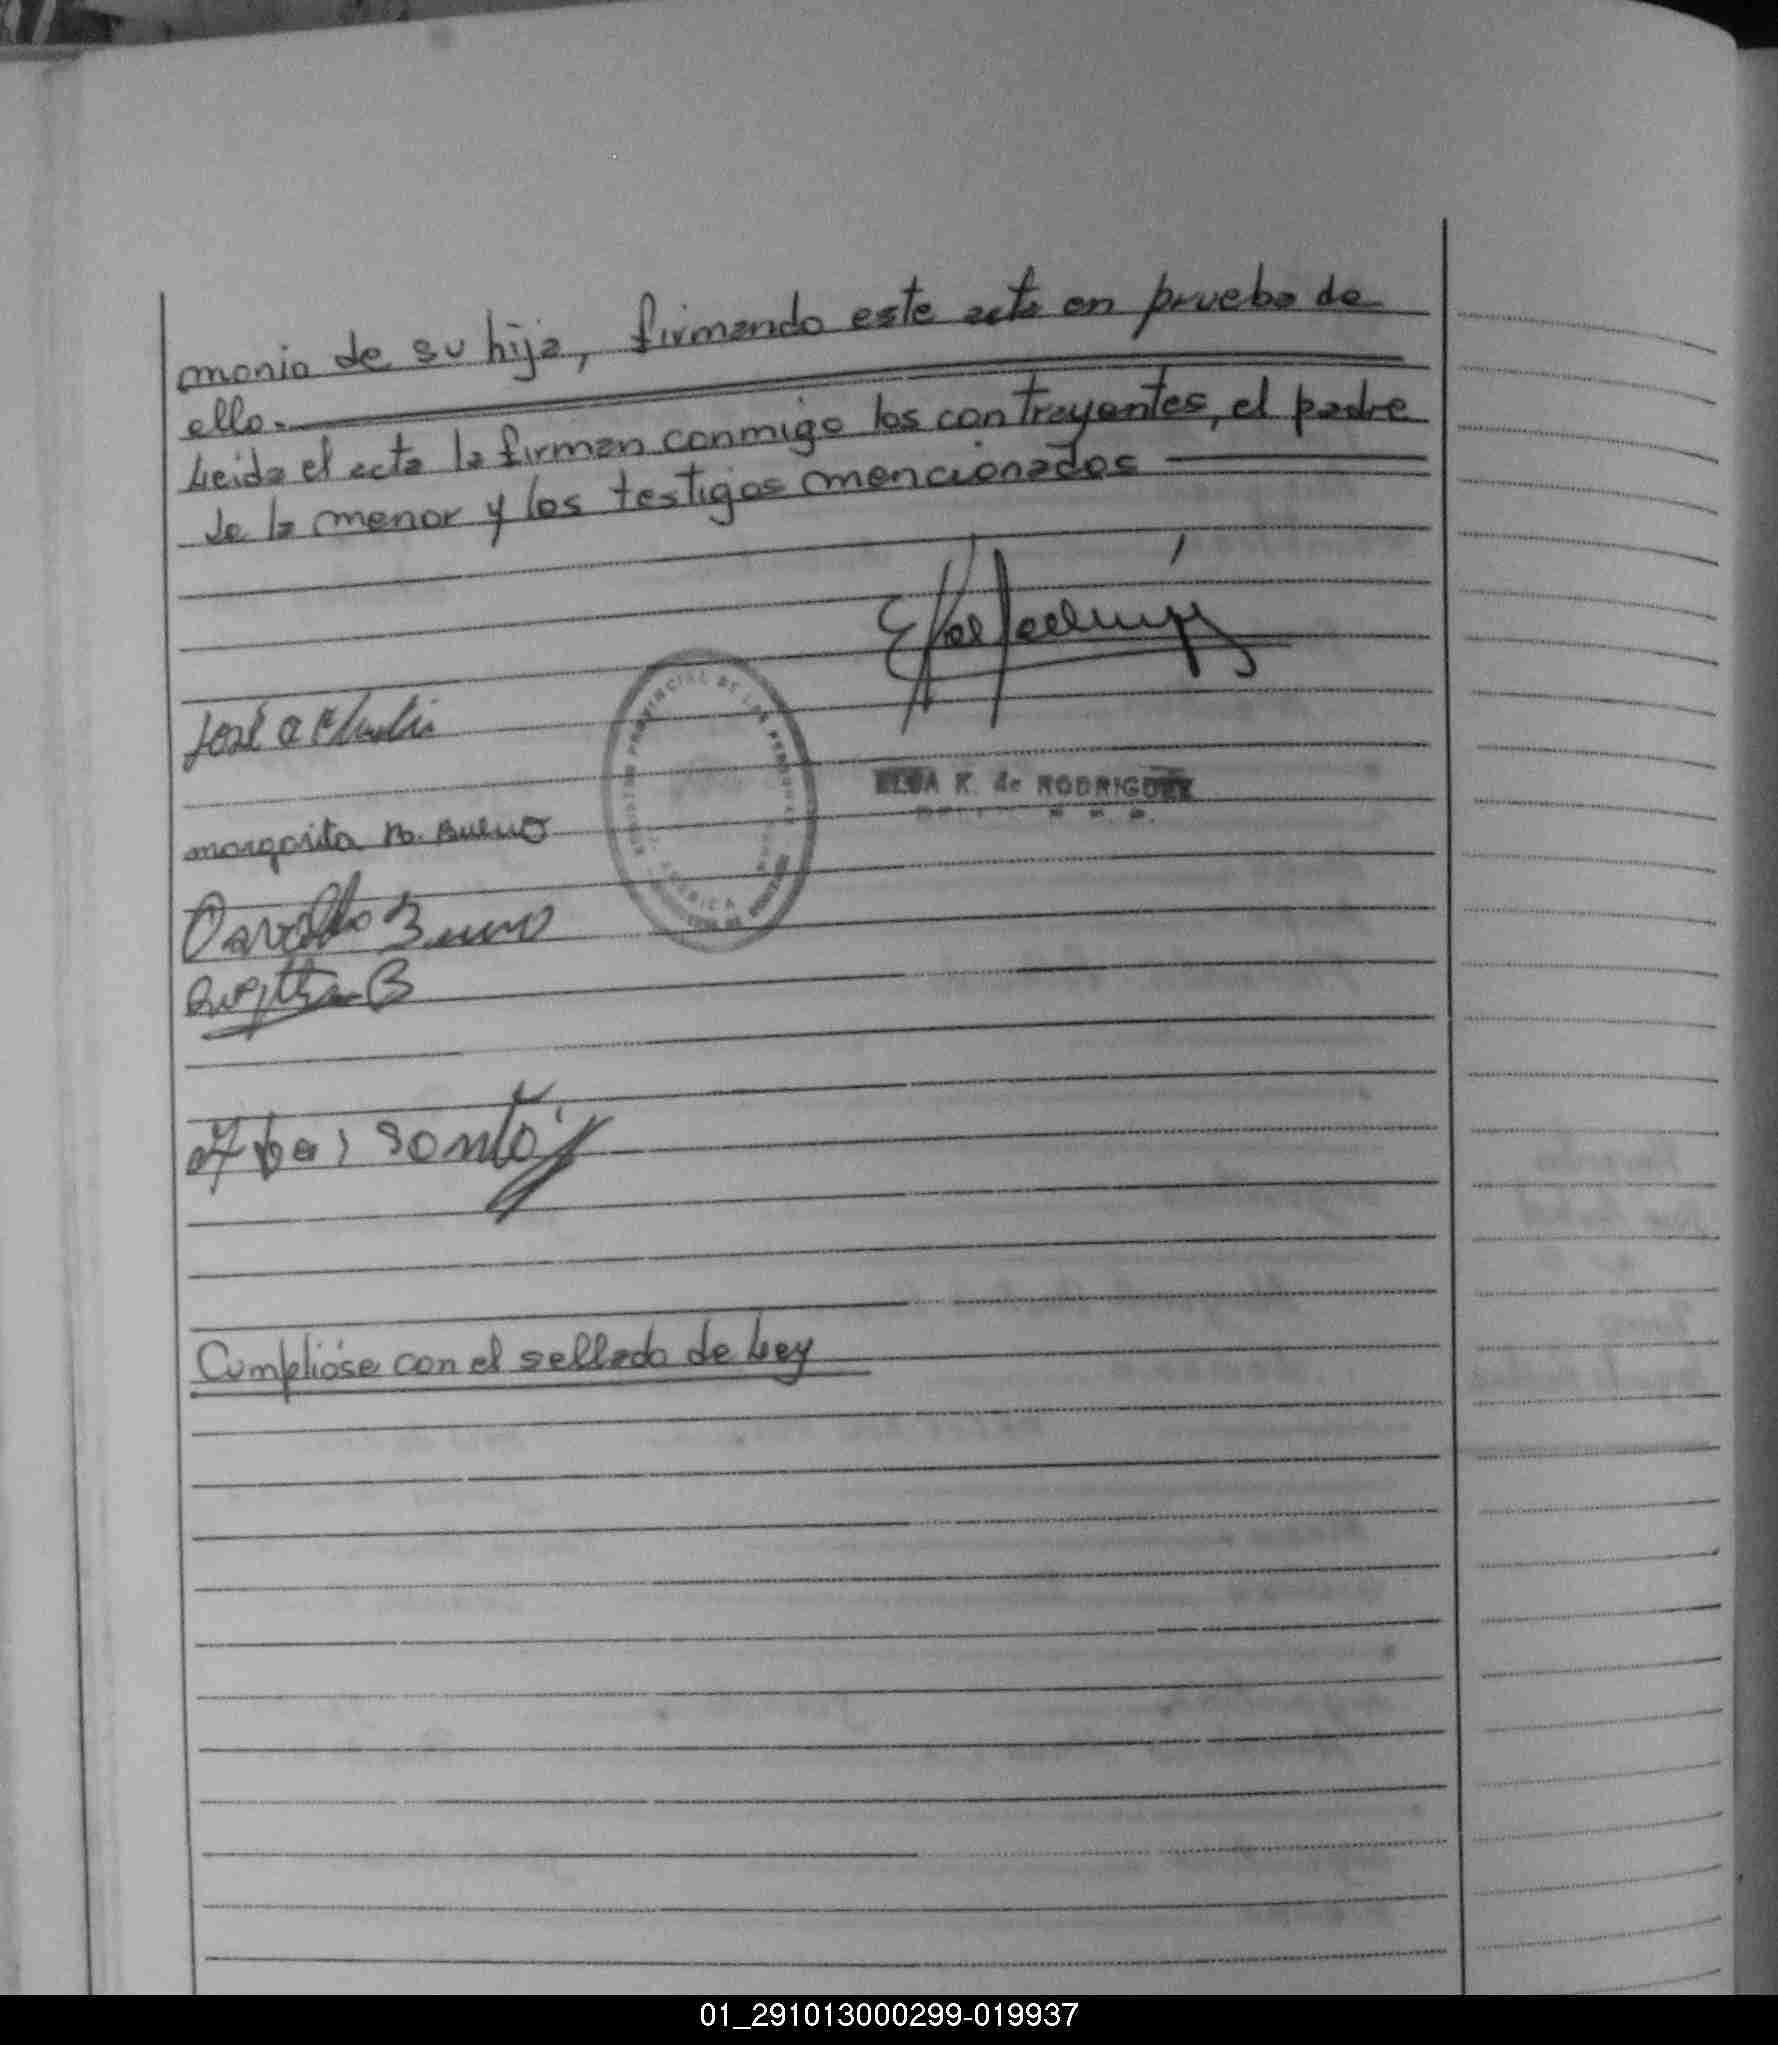 monio de su hija, firmando este acto en prueba de
ello.
Leida el acta la firman conmigo los contrayentes, el padre
de la menor y los testigos mencionados
José A
REGISTRO PROVINCIAL DE LAS PERSONAS
AMERICA
K. de RODRIGUEZ
margarita B. Bueno
Osvaldo Bueno
Cumplióse con el sellado de Ley
01_291013000299-019937